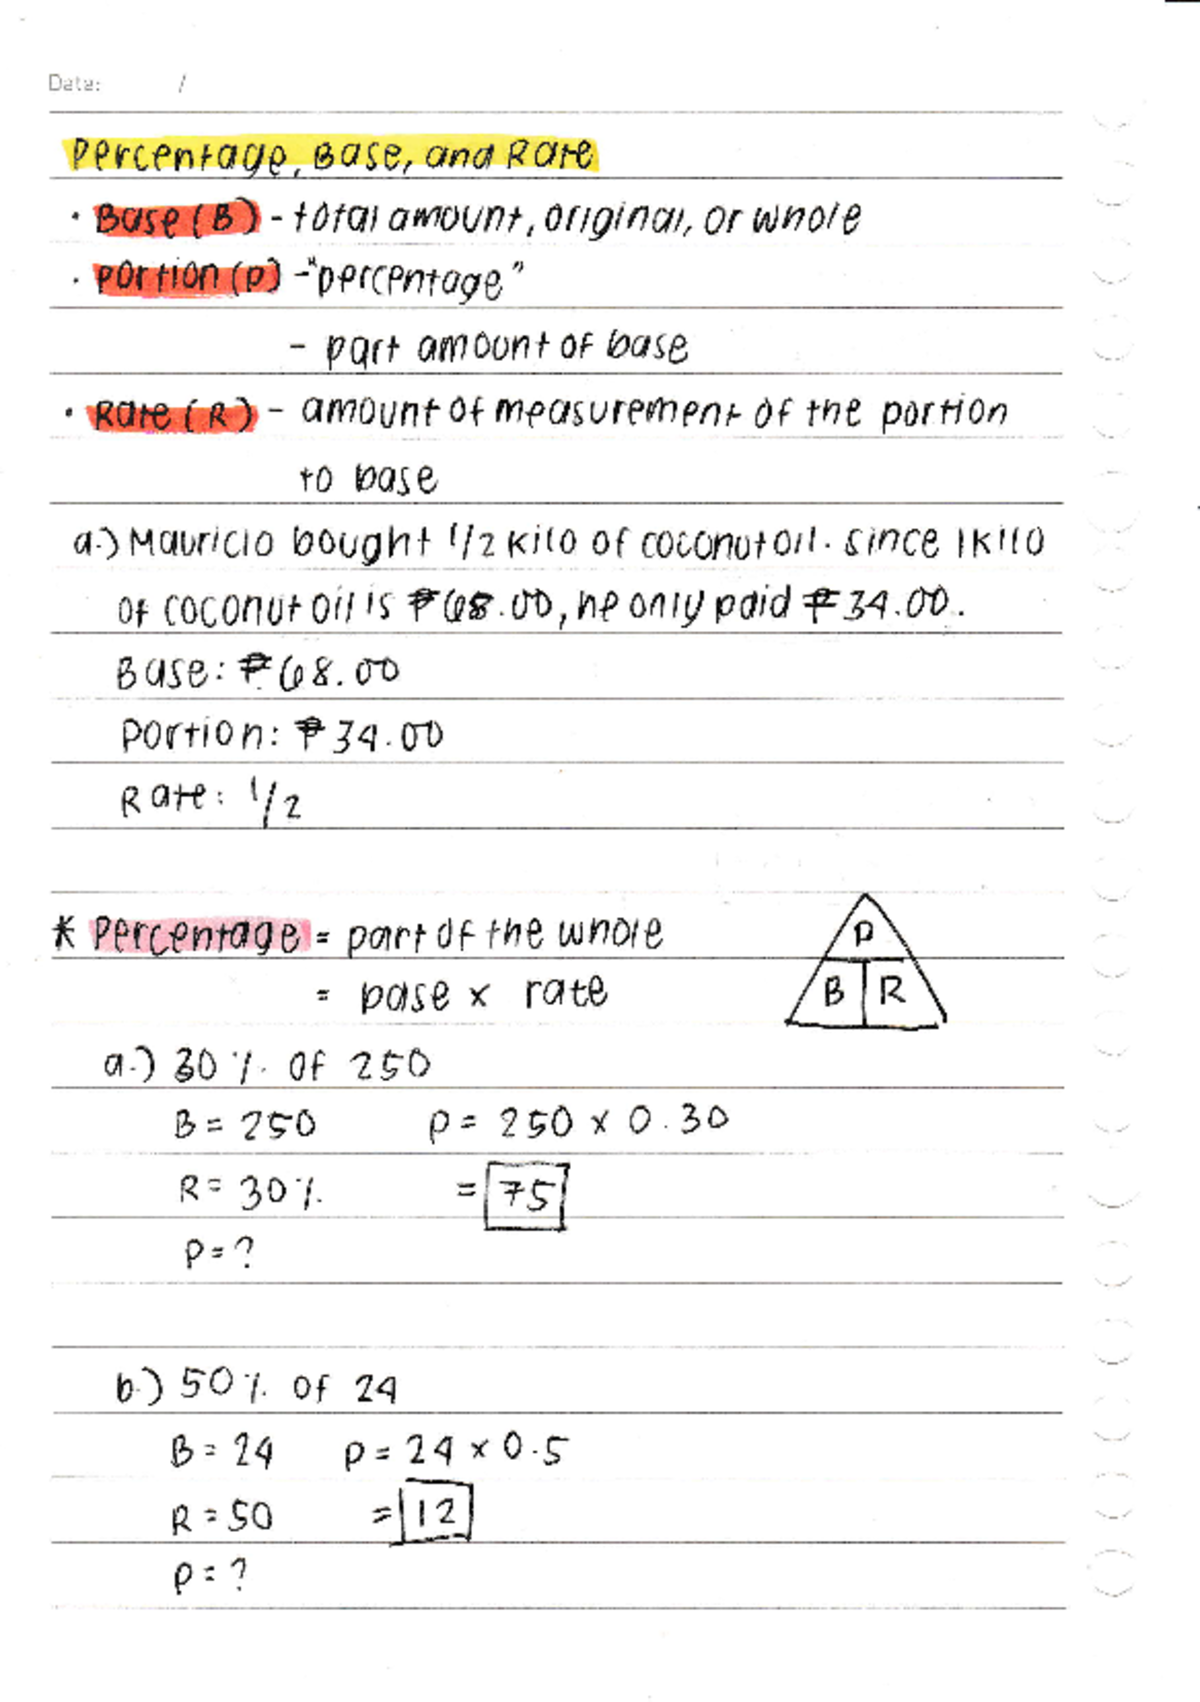 Date: /
Percentage, Base, and Rate
• Base (B) - total amount, original, or whole
• Portion (P) - "percentage"
- part amount of base
• Rate (R) - amount of measurement of the portion
to base
a.) Mauricio bought 1/2 kilo of coconut oil. Since 1 kilo
of coconut oil is ₱68.00, he only paid ₱34.00.
Base: ₱68.00
Portion: ₱34.00
Rate: 1/2
* Percentage = part of the whole
P
= base x rate
B R
a.) 30% of 250
B = 250 P = 250 x 0.30
R = 30% = 75
P = ?
b.) 50% of 24
B = 24 P = 24 x 0.5
R = 50 = 12
P = ?